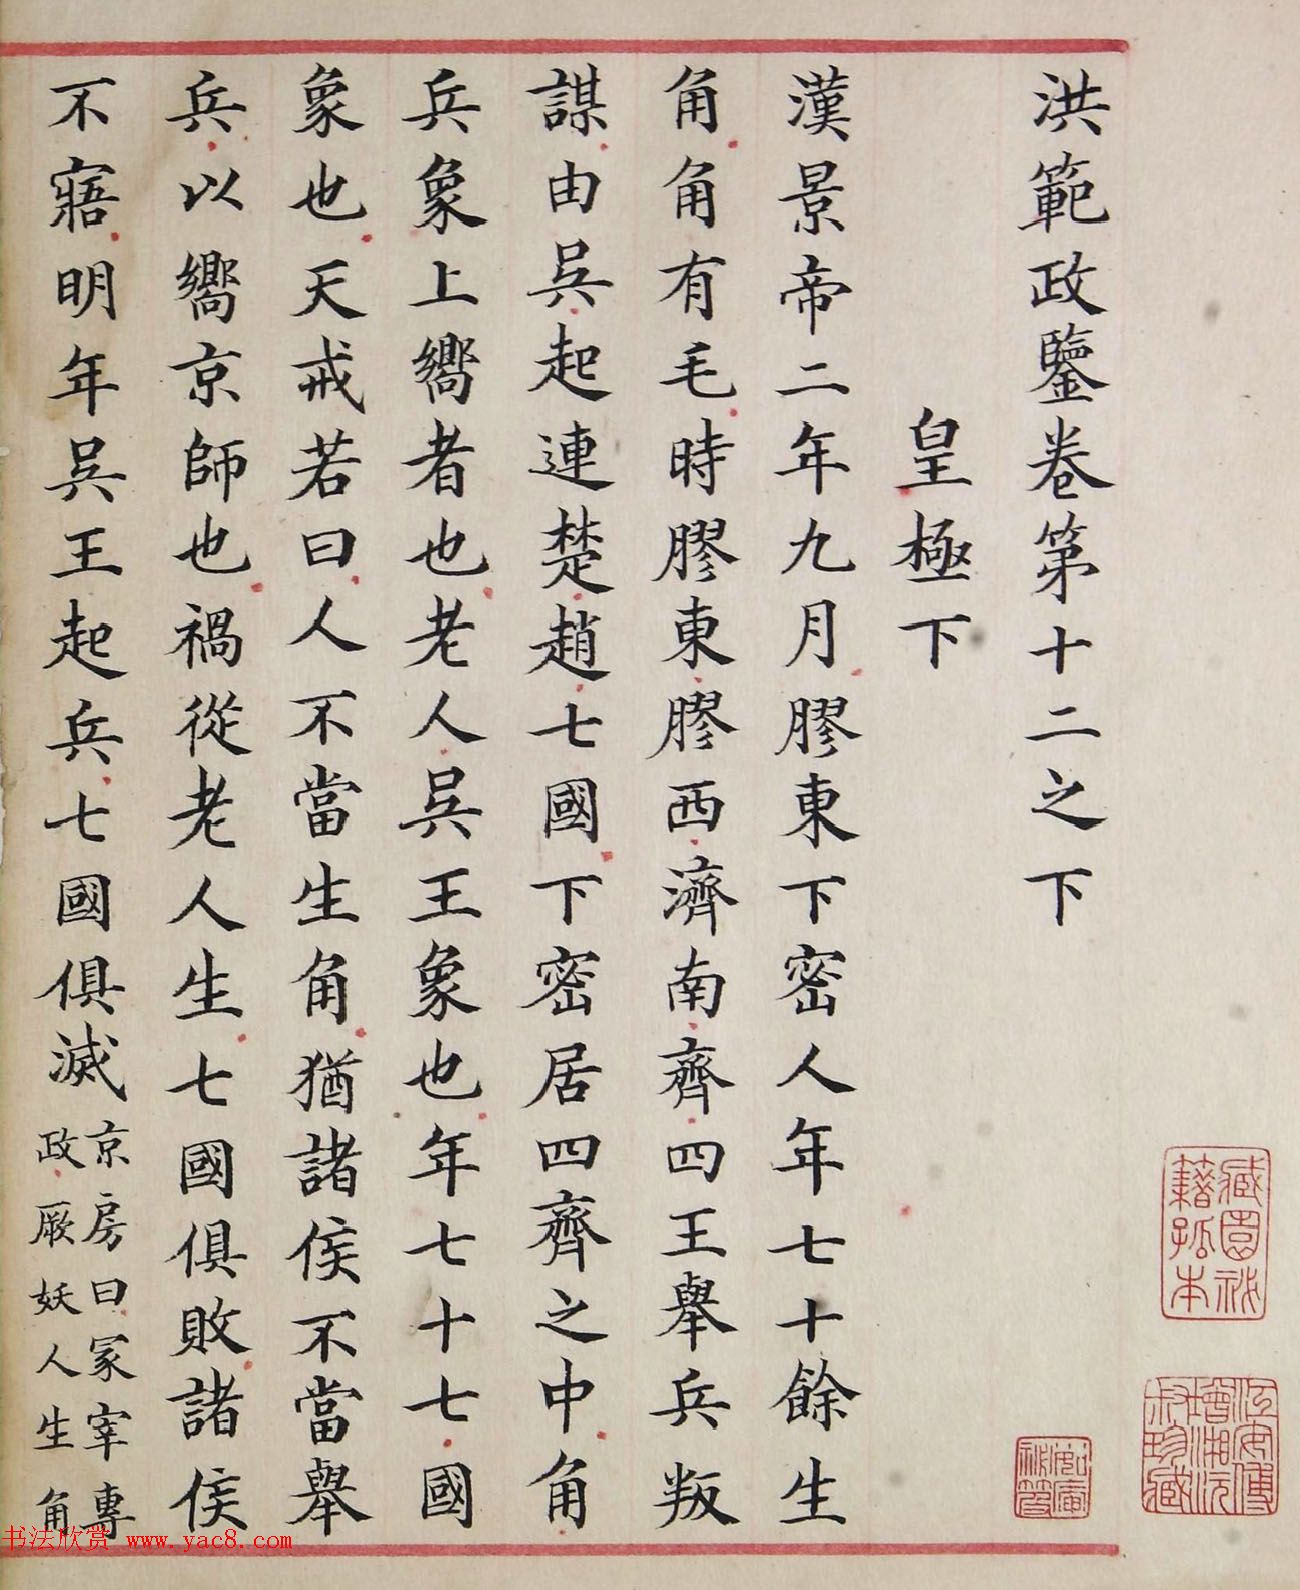 洪範政鑒卷第十二之下
皇極下
漢景帝二年九月膠東下密人年七十餘生
角角有毛時膠東膠西濟南齊四王舉兵叛
謀由吳起連楚趙七國下密居四齊之中角
兵象上嚮者也老人吳王象也年七十七國
象也天戒若曰人不當生角猶諸侯不當舉
兵以嚮京師也禍從老人生七國俱敗諸侯
不寤明年吳王起兵七國俱滅
京房曰冢宰專
政厥妖人生角
臧園祕
籍孤本
江安傅
增湘沅
叔珍藏
书法欣赏 www.yac8.com